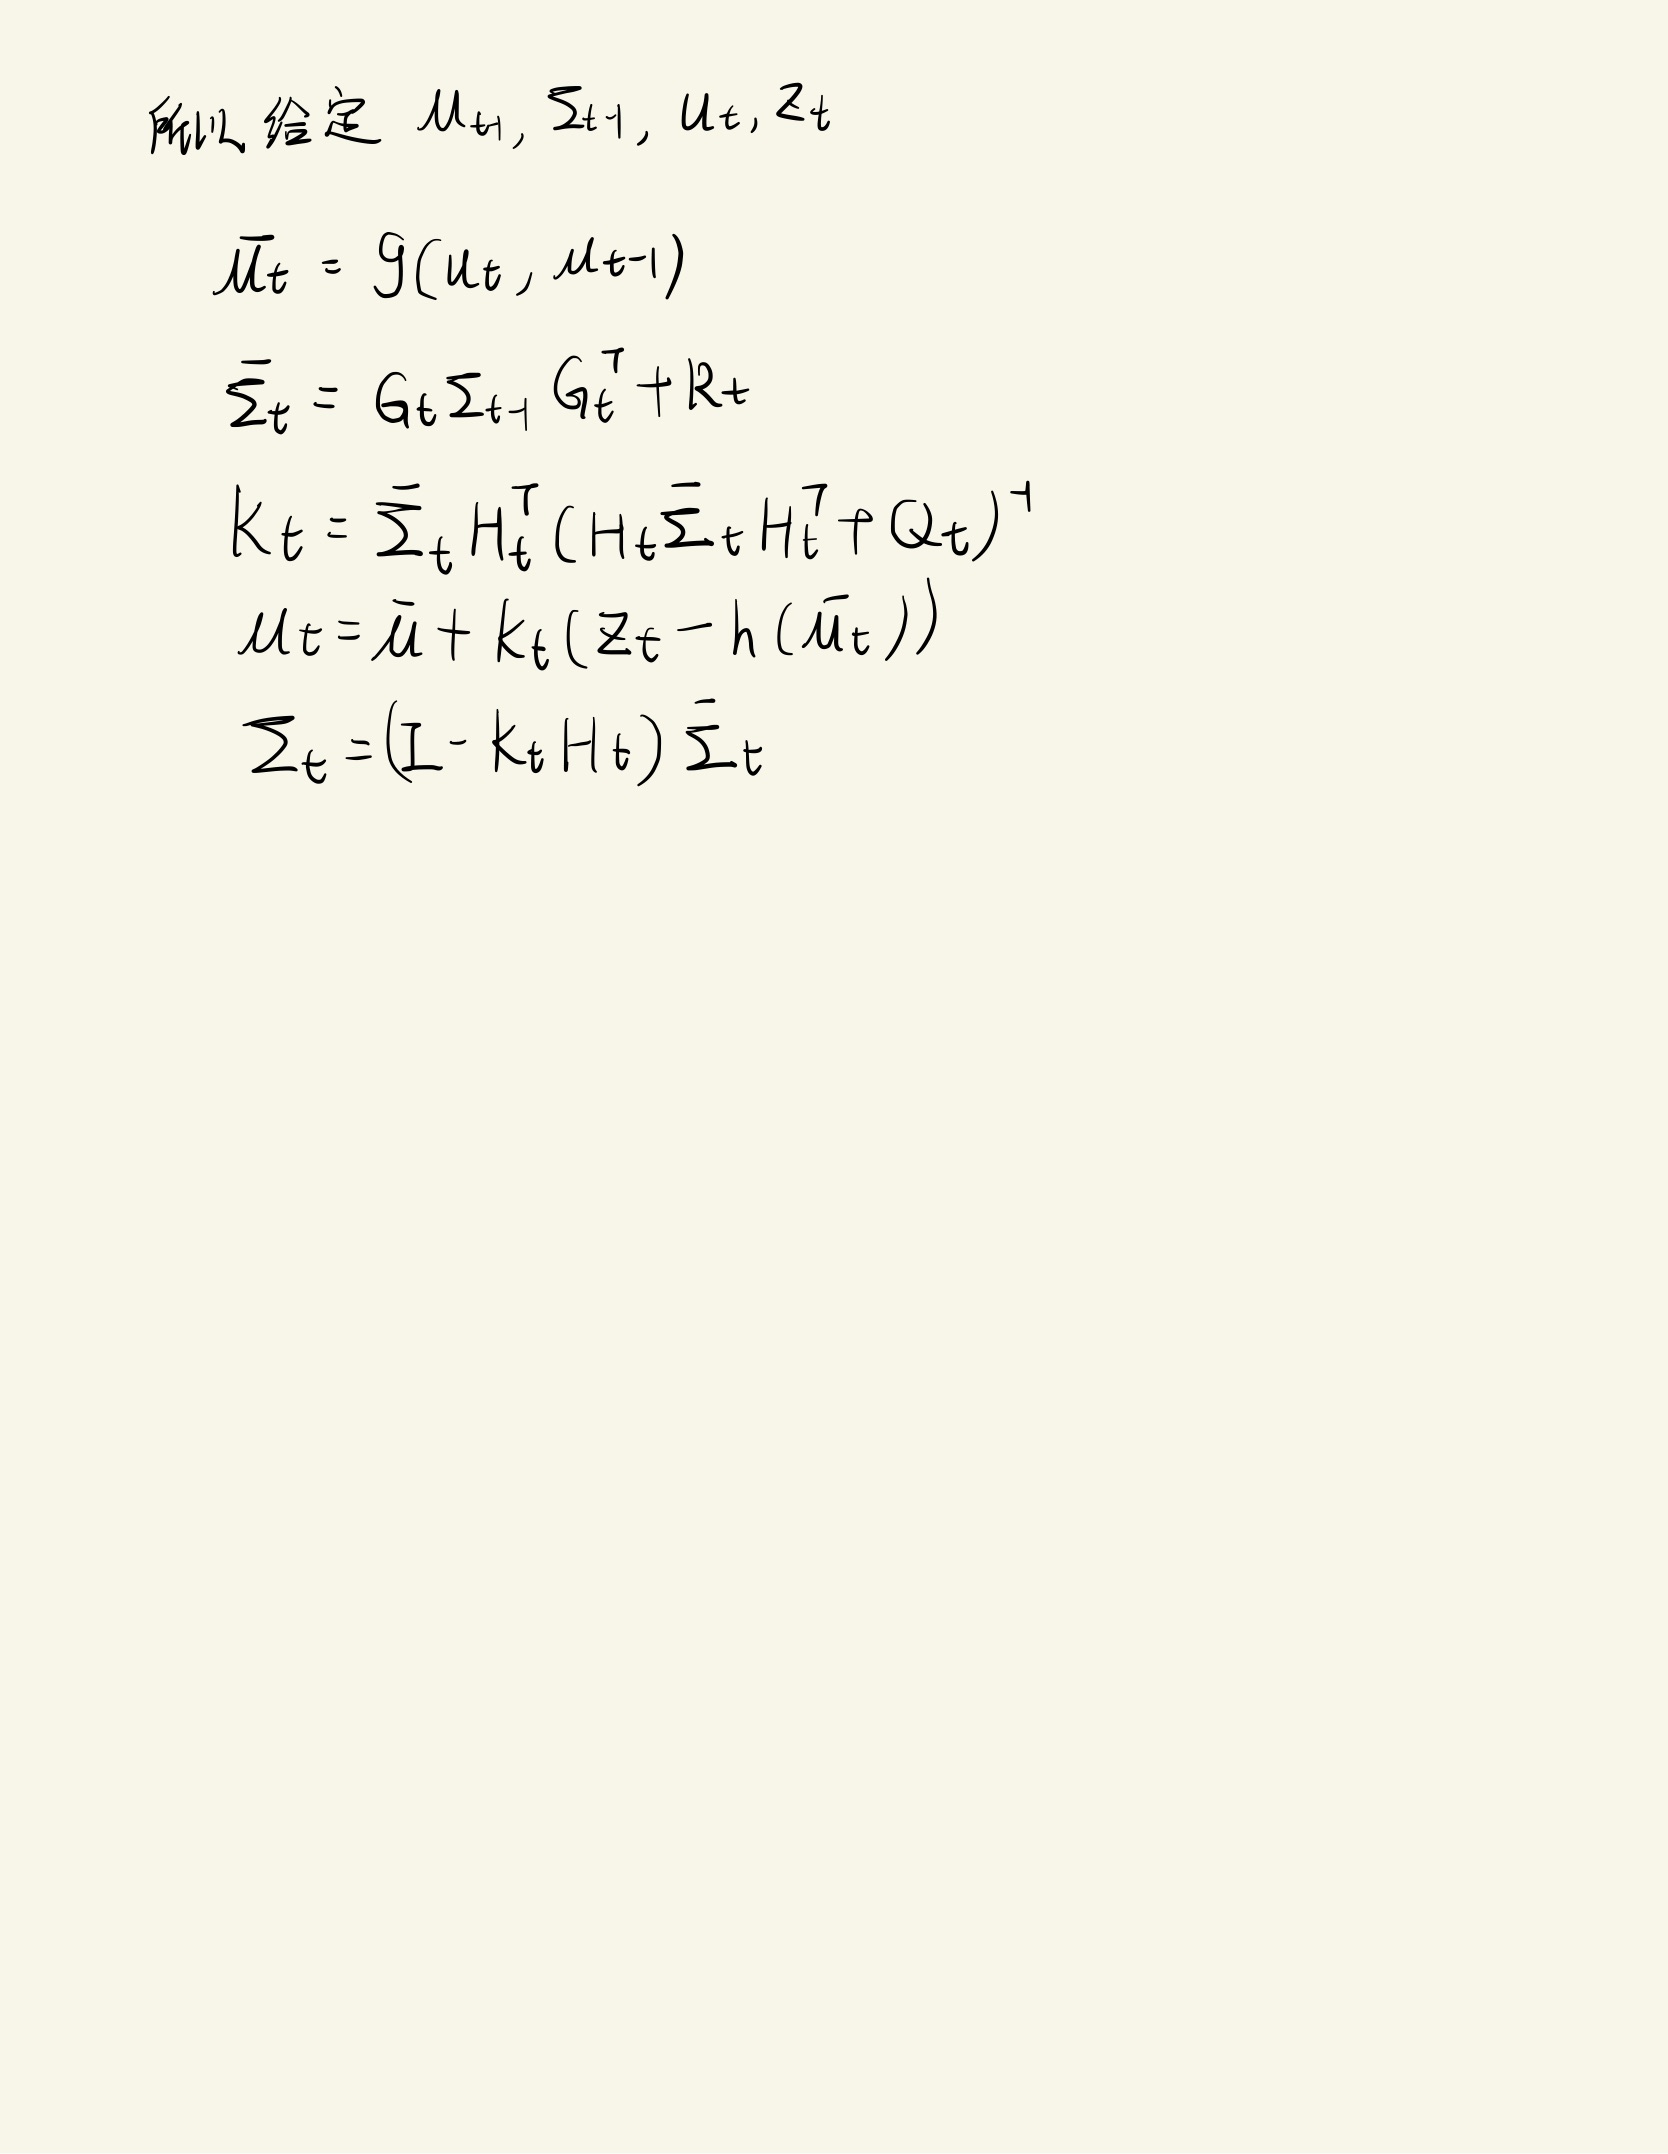 所以给定 μₜ₋₁, Σₜ₋₁, uₜ, zₜ
μ̄ₜ = g(uₜ, μₜ₋₁)
Σ̄ₜ = GₜΣₜ₋₁Gₜᵀ + Rₜ
Kₜ = Σ̄ₜHₜᵀ(HₜΣ̄ₜHₜᵀ + Qₜ)⁻¹
μₜ = μ̄ + Kₜ(zₜ − h(μ̄ₜ))
Σₜ = (I − KₜHₜ)Σ̄ₜ